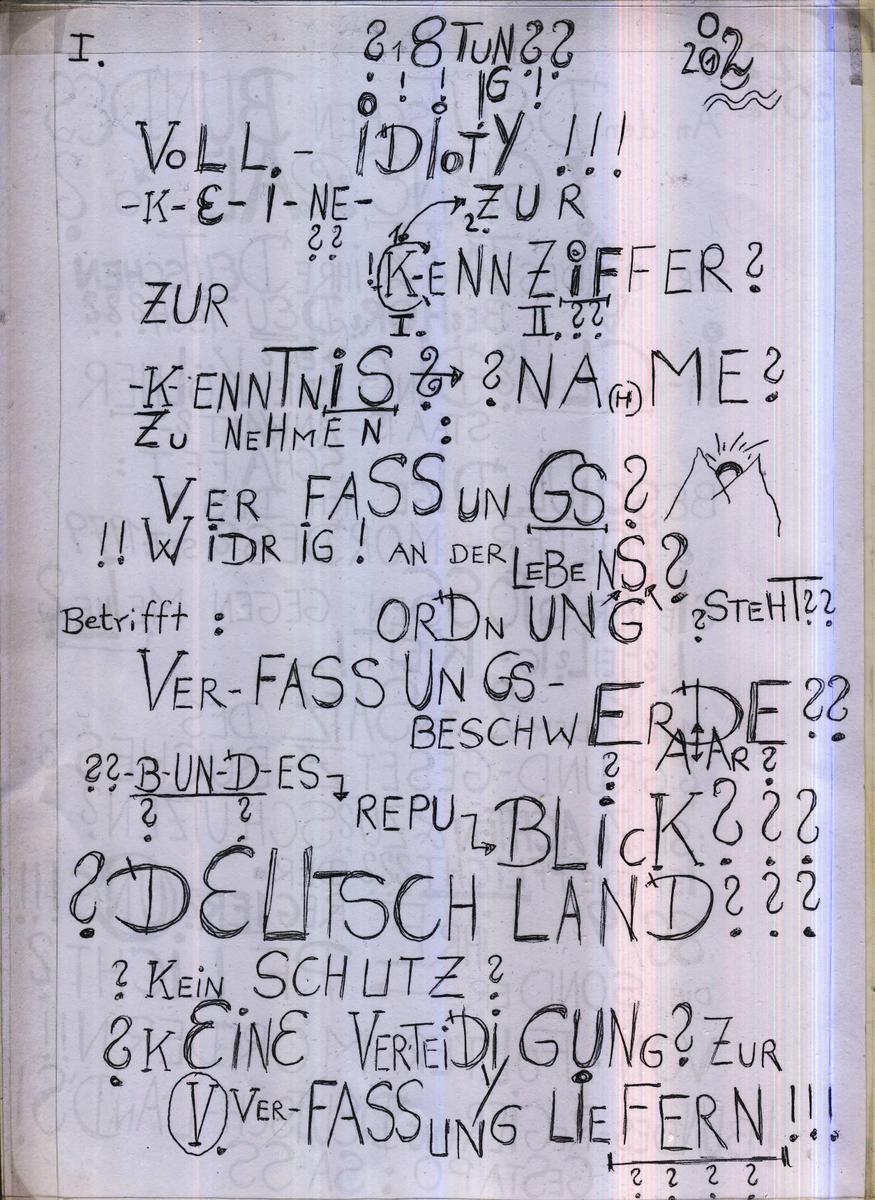 I. ?18TUN?? 2012
! ! IG !
VOLL.- IDIOTY !!!
-K-E-I-NE- 2. ZUR
?? 1.
! K-ENNZIFFER?
ZUR I. II. ??
-K-ENNTNIS ? → ?NA(H)ME?
ZU NEHMEN :
VER FASSUNGS?
!! WIDRIG! AN DER LEBENS?
Betrifft : ORDNUNG ?STEHT??
VER-FASSUNGS-
BESCHWERDE ??
? A AR ?
??-B-UN-D-ES
? ?
REPU BLiCK???
?DEUTSCHLAND???
? KEIN SCHUTZ?
?KEINE VERTEIDIGUNG? ZUR
V VER-FASSUNG LIEFERN!!!
? ? ? ?